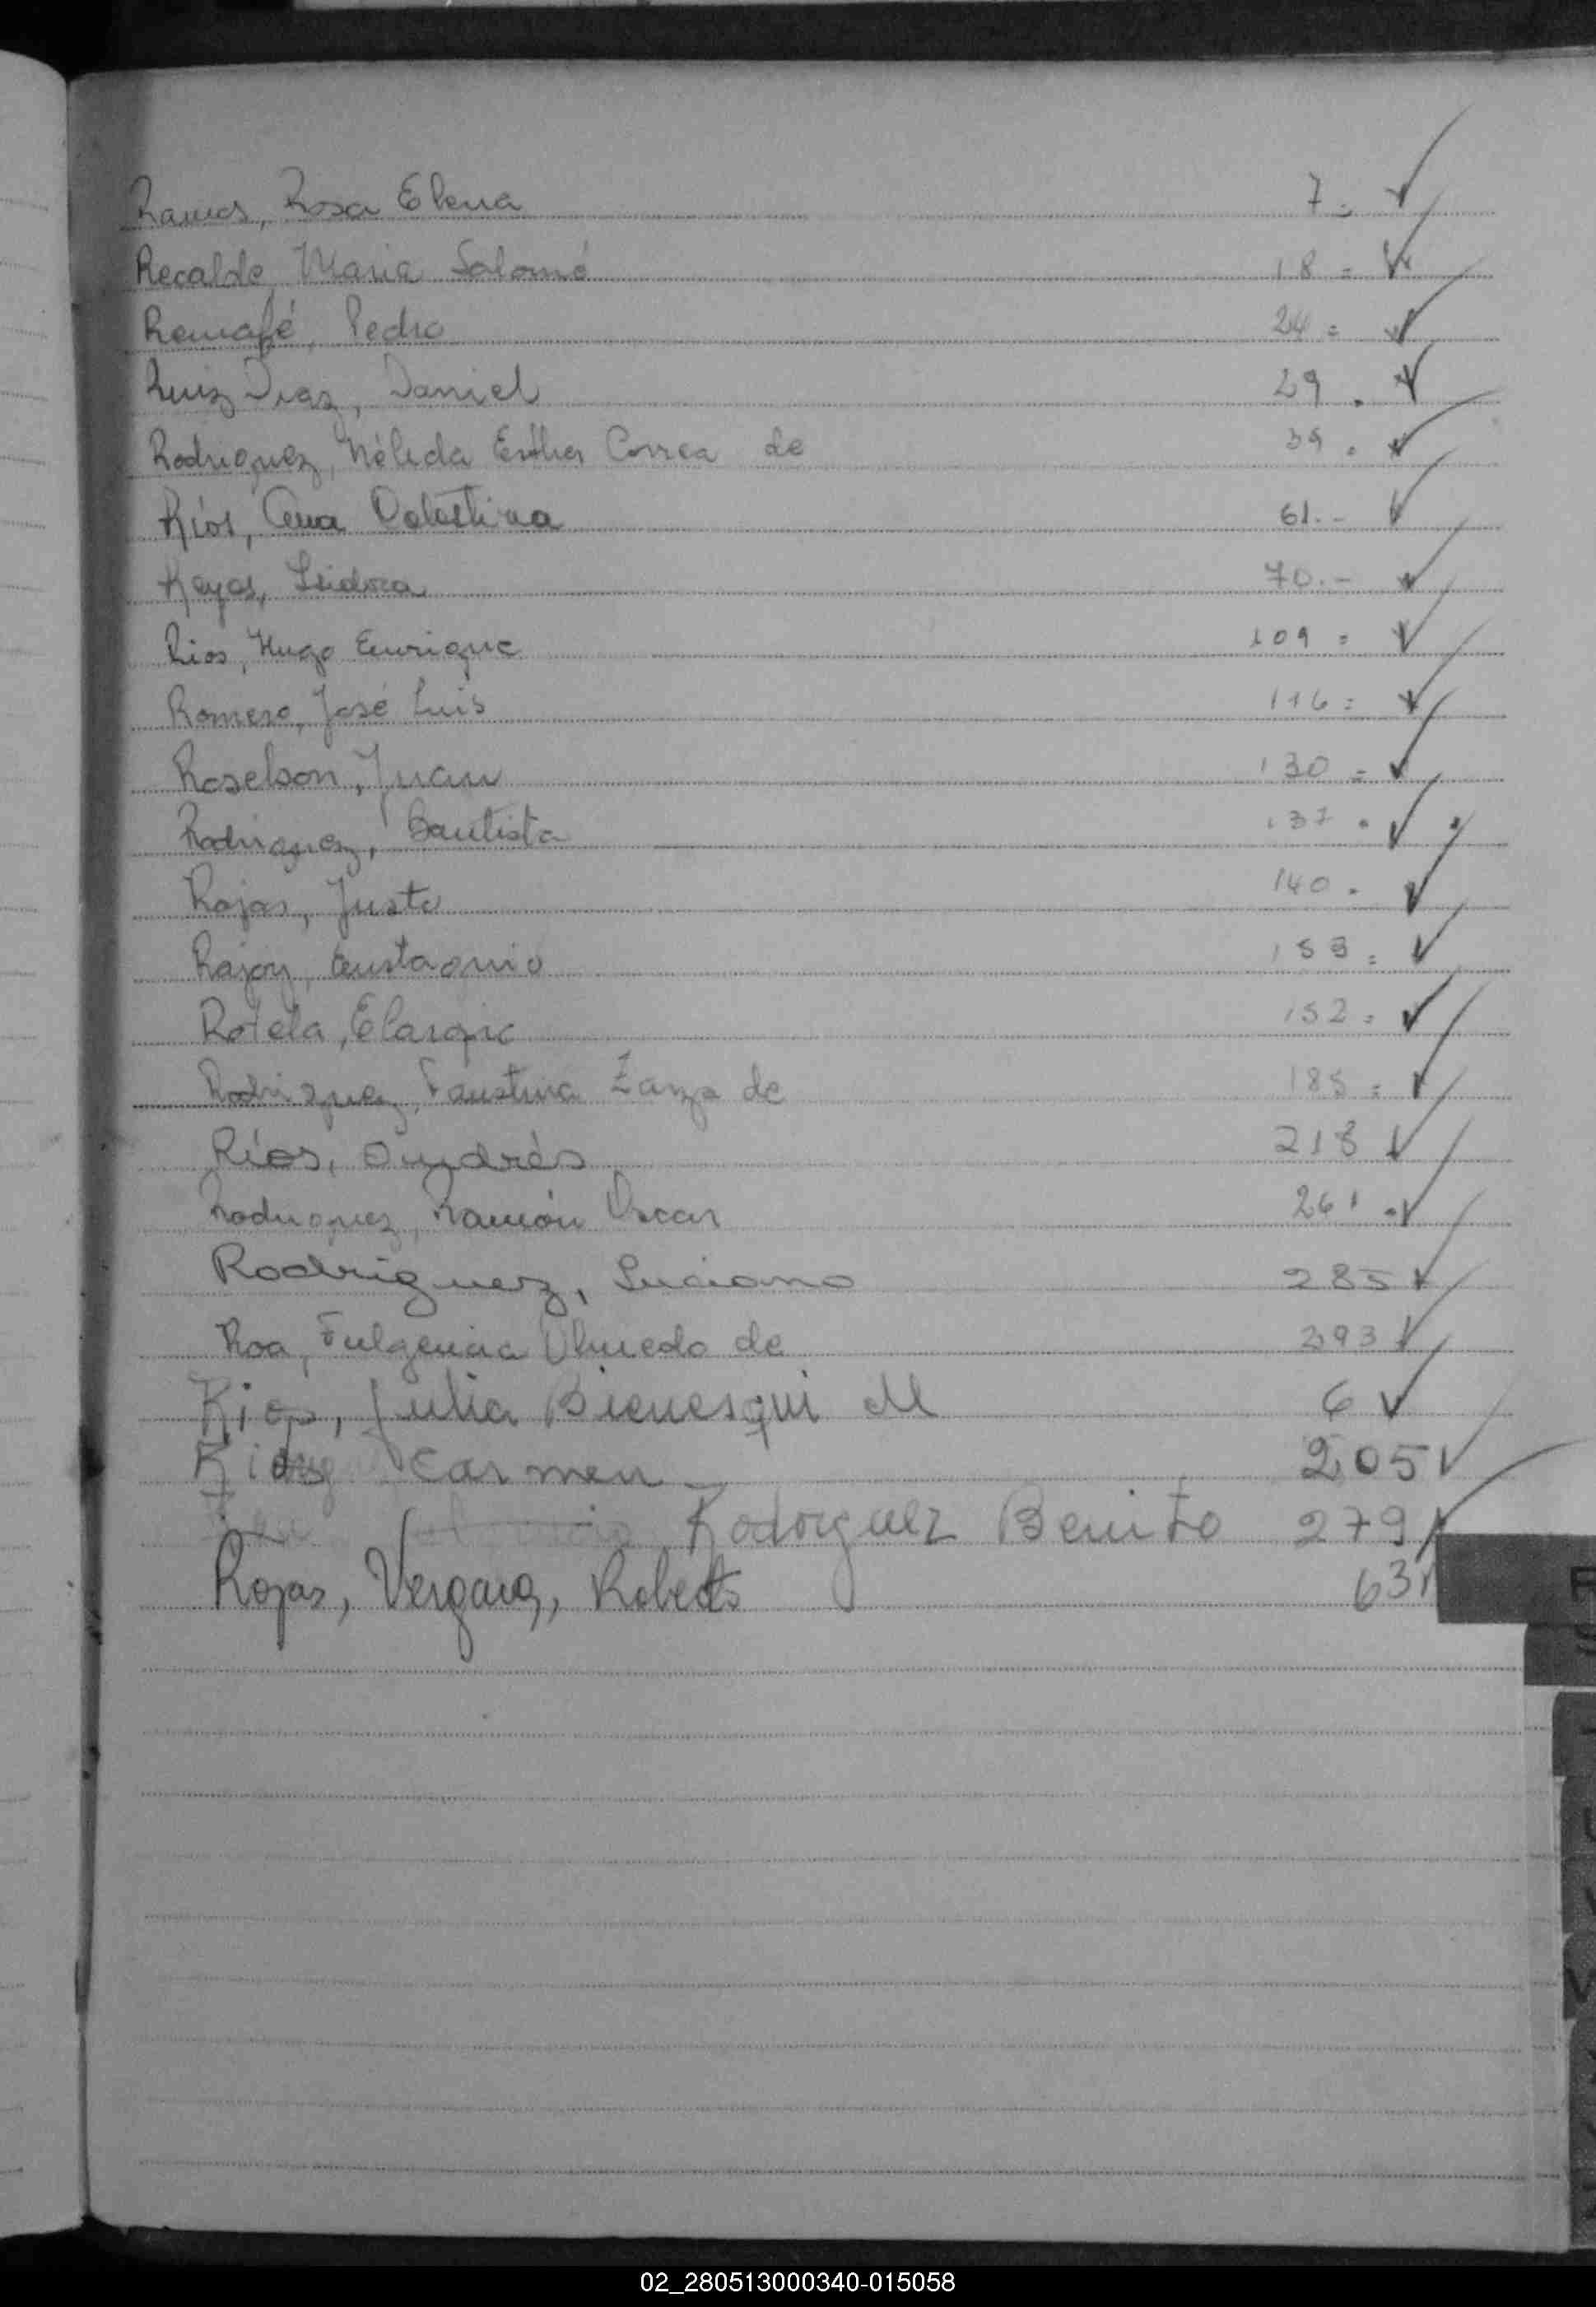 Ramos, Rosa Elena 7 =
Recalde, Maria Salomé 18 =
Remafé, Pedro 24 =
Ruiz Diaz, Daniel 29 .
Rodriguez, Nélida Esther Correa de 39 .
Ríos, Ana Celestina 61.-
Reyes, Isidora 70.-
Rios, Hugo Enrique 109 =
Romero, José Luis 116 =
Roselson, Juan 130 =
Rodriguez, Bautista 137 .
Rojas, Justo 140 .
Eustaquio 153 =
Rotela, 152 =
Rodriguez, Faustina de 185 =
Ríos, Andrés 218
Rodriguez, Ramón Oscar 261 .
Rodriguez, Luciano 285
Roa, Fulgencia Olmedo de 293
Rios, Julia Bienesqui 6
Carmen 205
Rodriguez Benito 279
Rojas, Vergara, Roberto 63
02_280513000340-015058